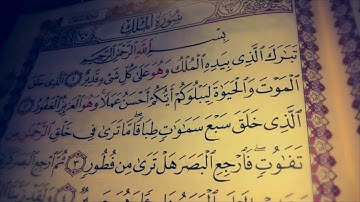 سُورَةُ الْمُلْكِ
بِسْمِ اللَّهِ الرَّحْمَٰنِ الرَّحِيمِ
تَبَارَكَ الَّذِي بِيَدِهِ الْمُلْكُ وَهُوَ عَلَىٰ كُلِّ شَيْءٍ قَدِيرٌ ١ الَّذِي خَلَقَ
الْمَوْتَ وَالْحَيَوٰةَ لِيَبْلُوَكُمْ أَيُّكُمْ أَحْسَنُ عَمَلًا وَهُوَ الْعَزِيزُ الْغَفُورُ ٢
الَّذِي خَلَقَ سَبْعَ سَمَٰوَٰتٍ طِبَاقًا مَا تَرَىٰ فِي خَلْقِ الرَّحْمَٰنِ
تَفَٰوُتٍ فَارْجِعِ الْبَصَرَ هَلْ تَرَىٰ مِنْ فُطُورٍ ٣ ثُمَّ ارْجِعِ الْبَصَرَ